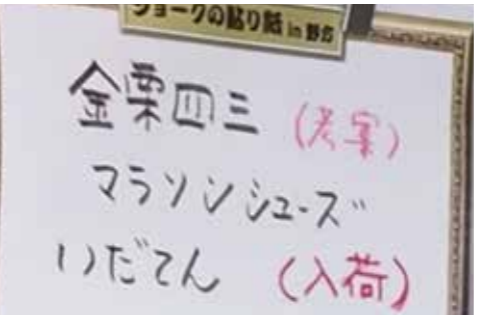 ジョークの貼り紙 in
金栗四三 (考案)
マラソンシューズ
いだてん (入荷)